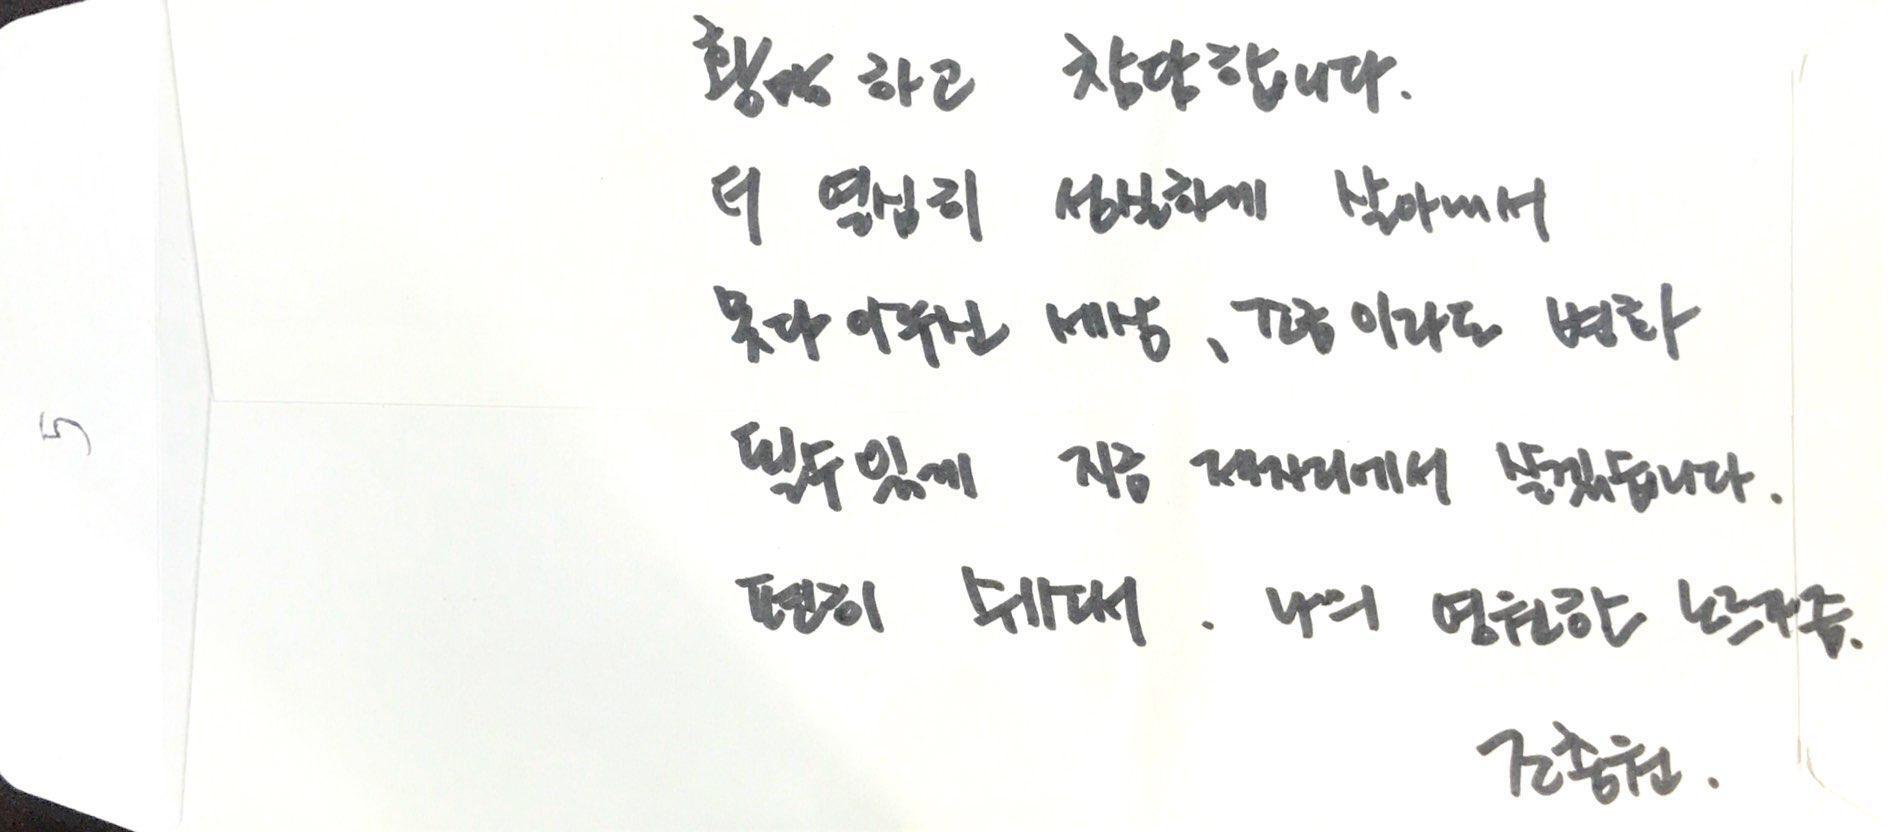 황망하고 참담합니다.
더 열심히 성실하게 살아내서
못다 이루신 세상, 조금이라도 변화
될 수 있게 지금 제자리에서 살겠습니다.
편히 쉬세요. 나의 영원한
5